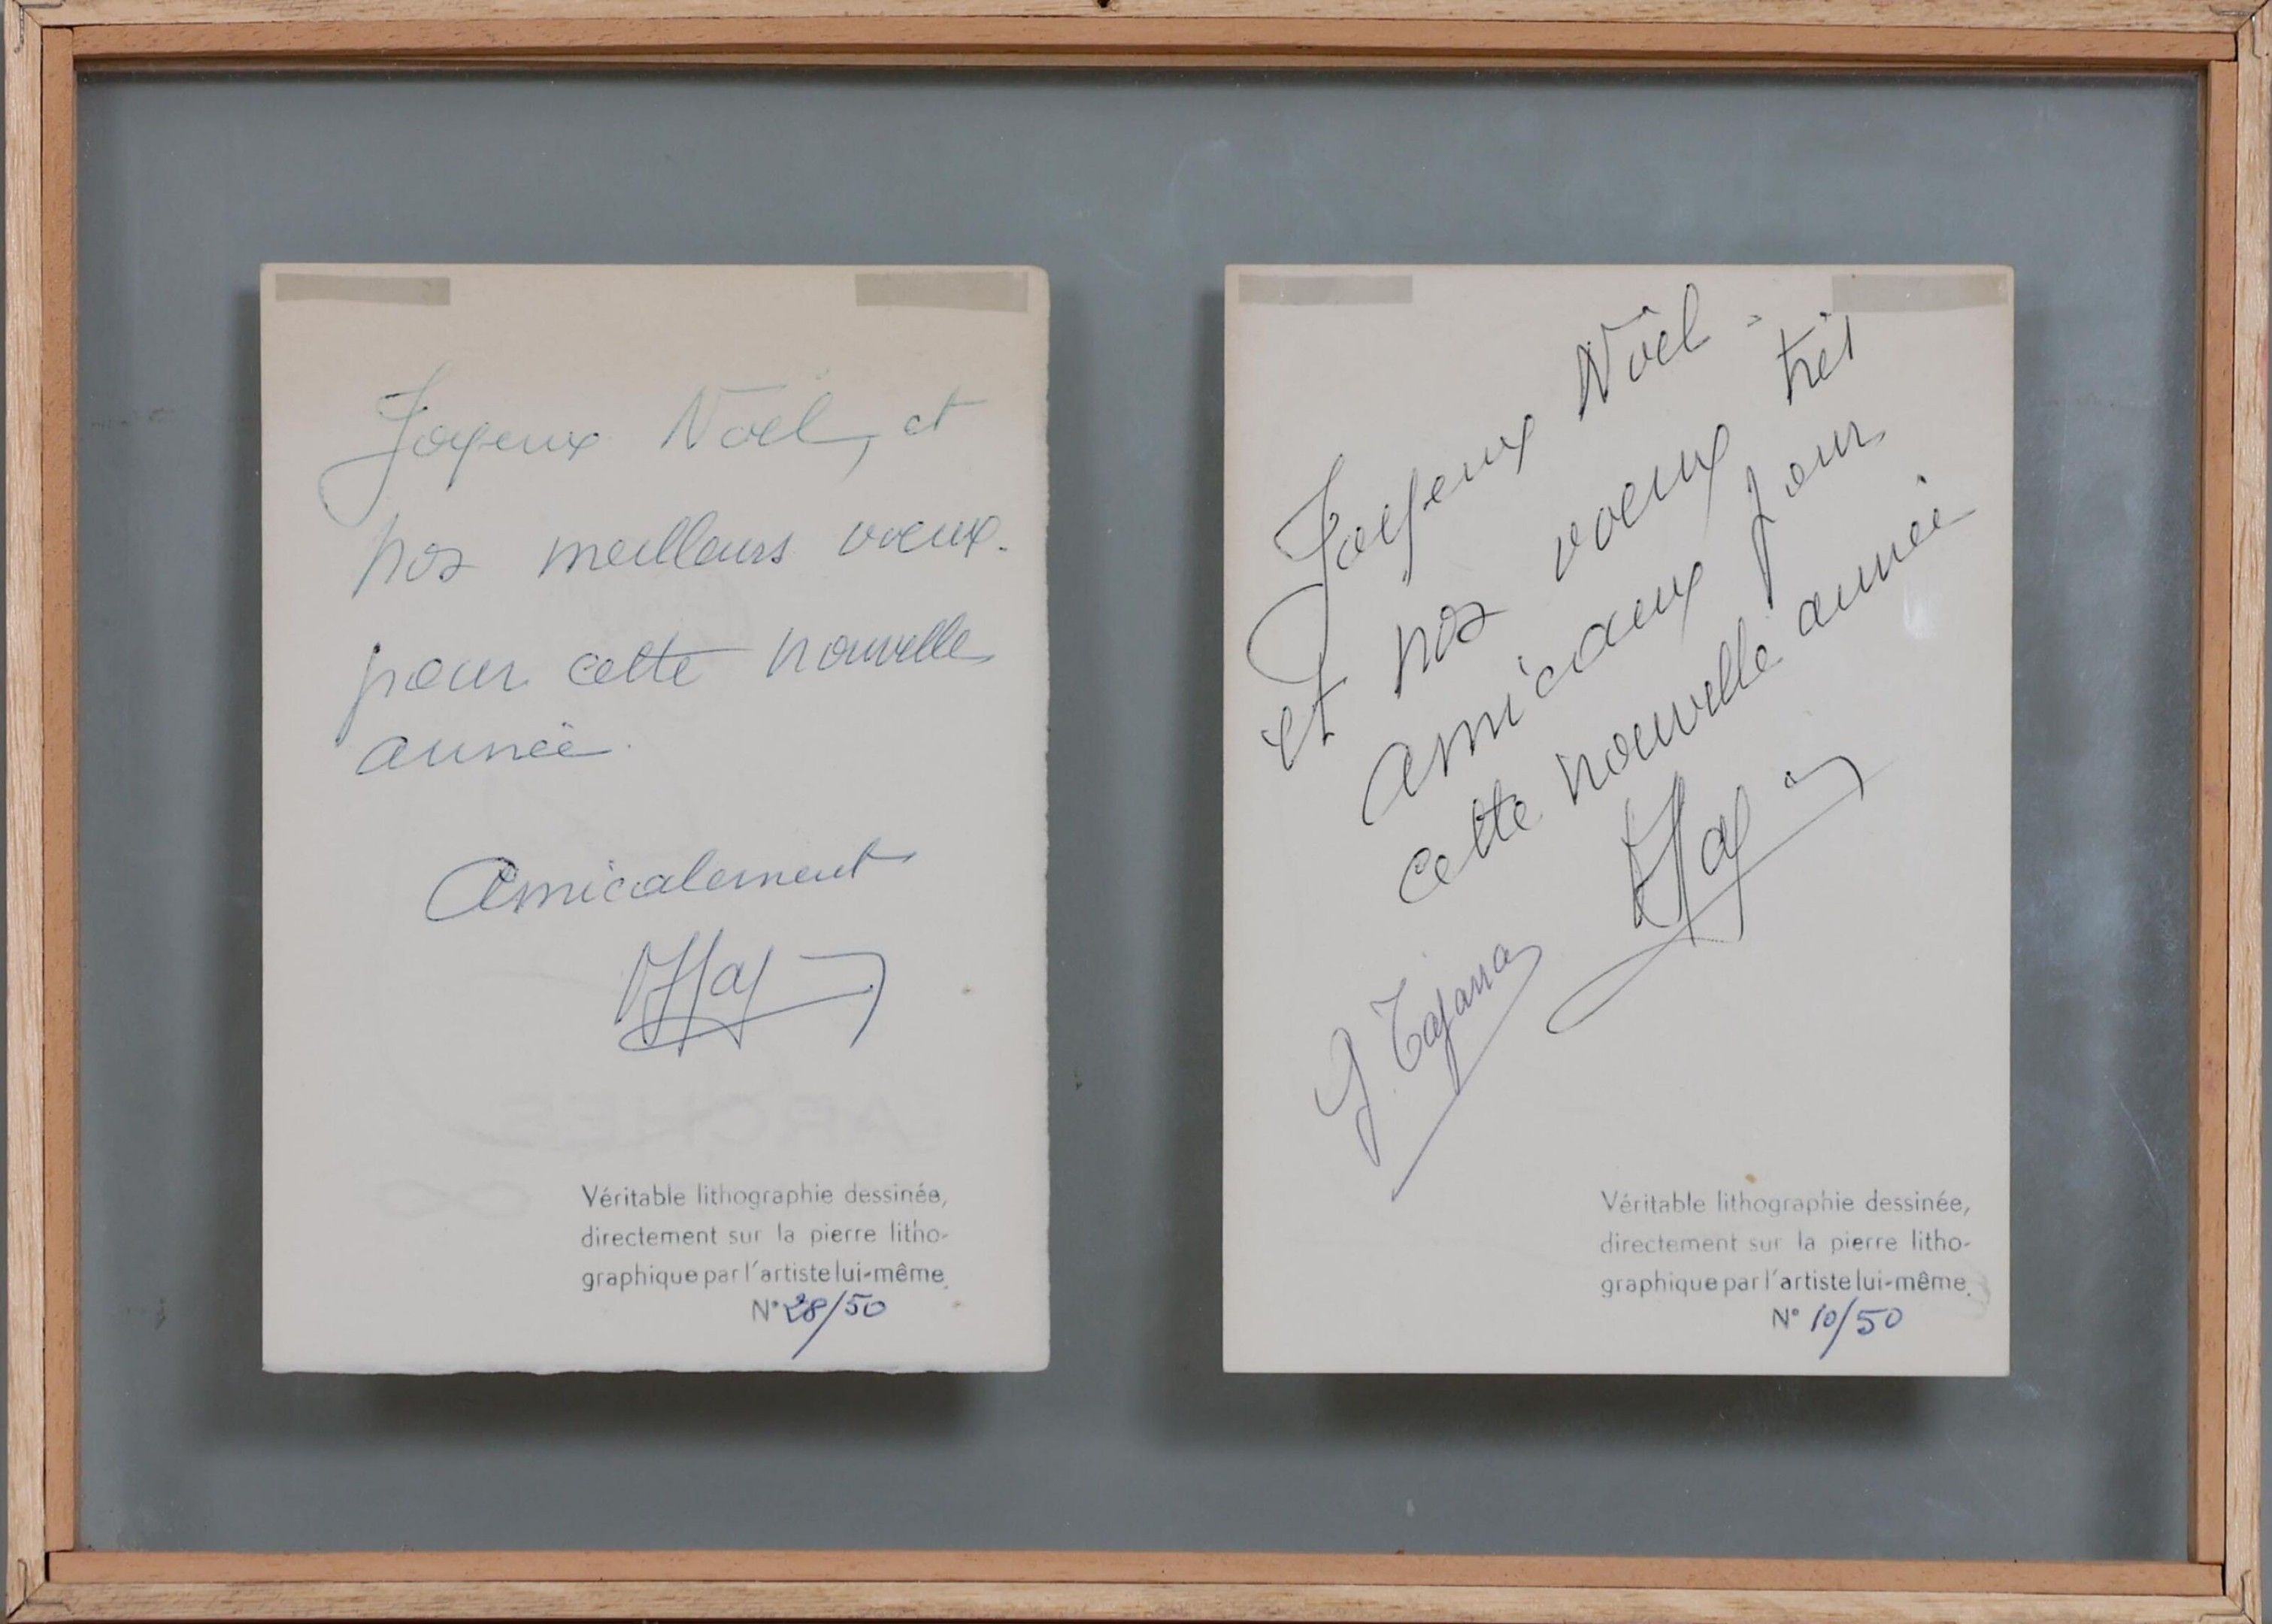 Joyeux Noël, et
nos meilleurs voeux
pour cette nouvelle
année.
Amicalement
ARCHES
Véritable lithographie dessinée,
directement sur la pierre litho-
graphique par l'artiste lui-même.
N° 28/50
Joyeux Noël -
et nos voeux très
amicaux pour
cette nouvelle année
Véritable lithographie dessinée,
directement sur la pierre litho-
graphique par l'artiste lui-même.
N° 10/50